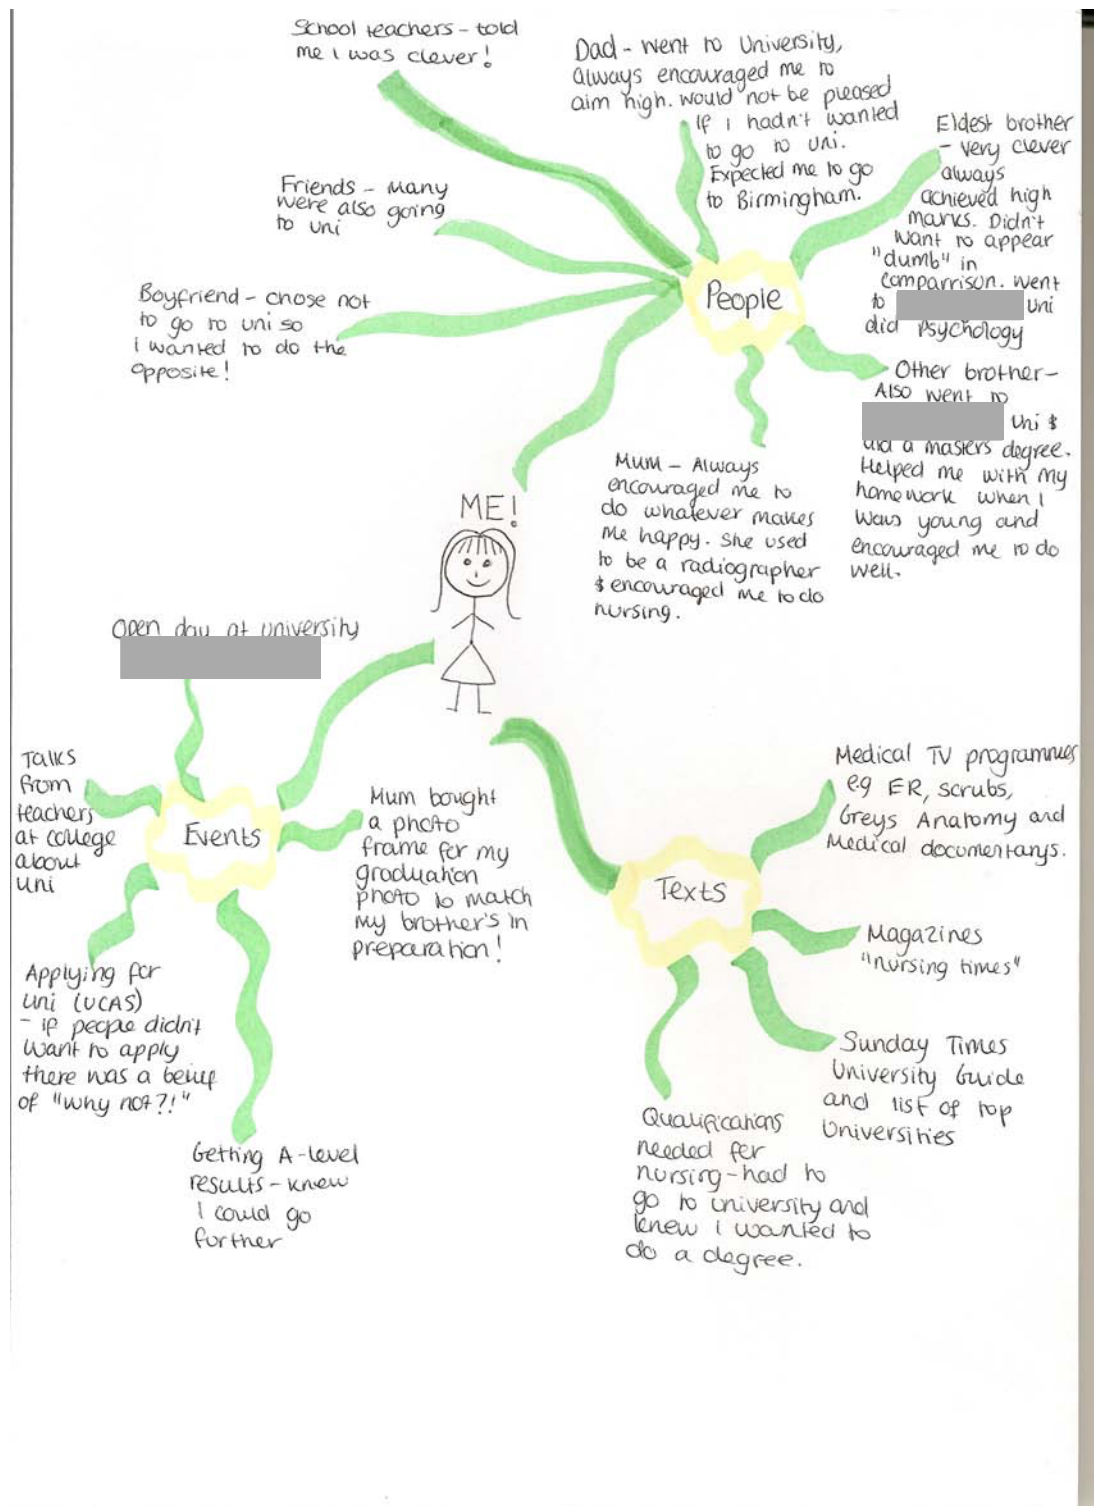 School teachers - told
me I was clever!
Dad - went to University,
always encouraged me to
aim high. would not be pleased
if i hadn't wanted
to go to uni.
Expected me to go
to Birmingham.
Eldest brother
- very clever
always
achieved high
marks. Didn't
want to appear
"dumb" in
comparrison. went
to uni
did Psychology
Friends - many
were also going
to uni
People
Boyfriend - chose not
to go to uni so
i wanted to do the
opposite!
Other brother -
Also went to
Uni &
did a masters degree.
Helped me with my
homework when I
was young and
encouraged me to do
well.
Mum - Always
encouraged me to
do whatever makes
me happy. She used
to be a radiographer
& encouraged me to do
nursing.
ME!
Open day at university
Talks
from
teachers
at college
about
uni
Events
Mum bought
a photo
frame for my
graduation
photo to match
my brother's in
preparation!
Applying for
uni (UCAS)
- if people didn't
want to apply
there was a being
of "why not?!"
Getting A-level
results - knew
I could go
further
Texts
Medical TV programmes
e.g ER, scrubs,
Greys Anatomy and
Medical documentarys.
Magazines
"nursing times"
Sunday Times
University Guide
and list of top
Universities
Qualifications
needed for
nursing - had to
go to university and
knew i wanted to
do a degree.